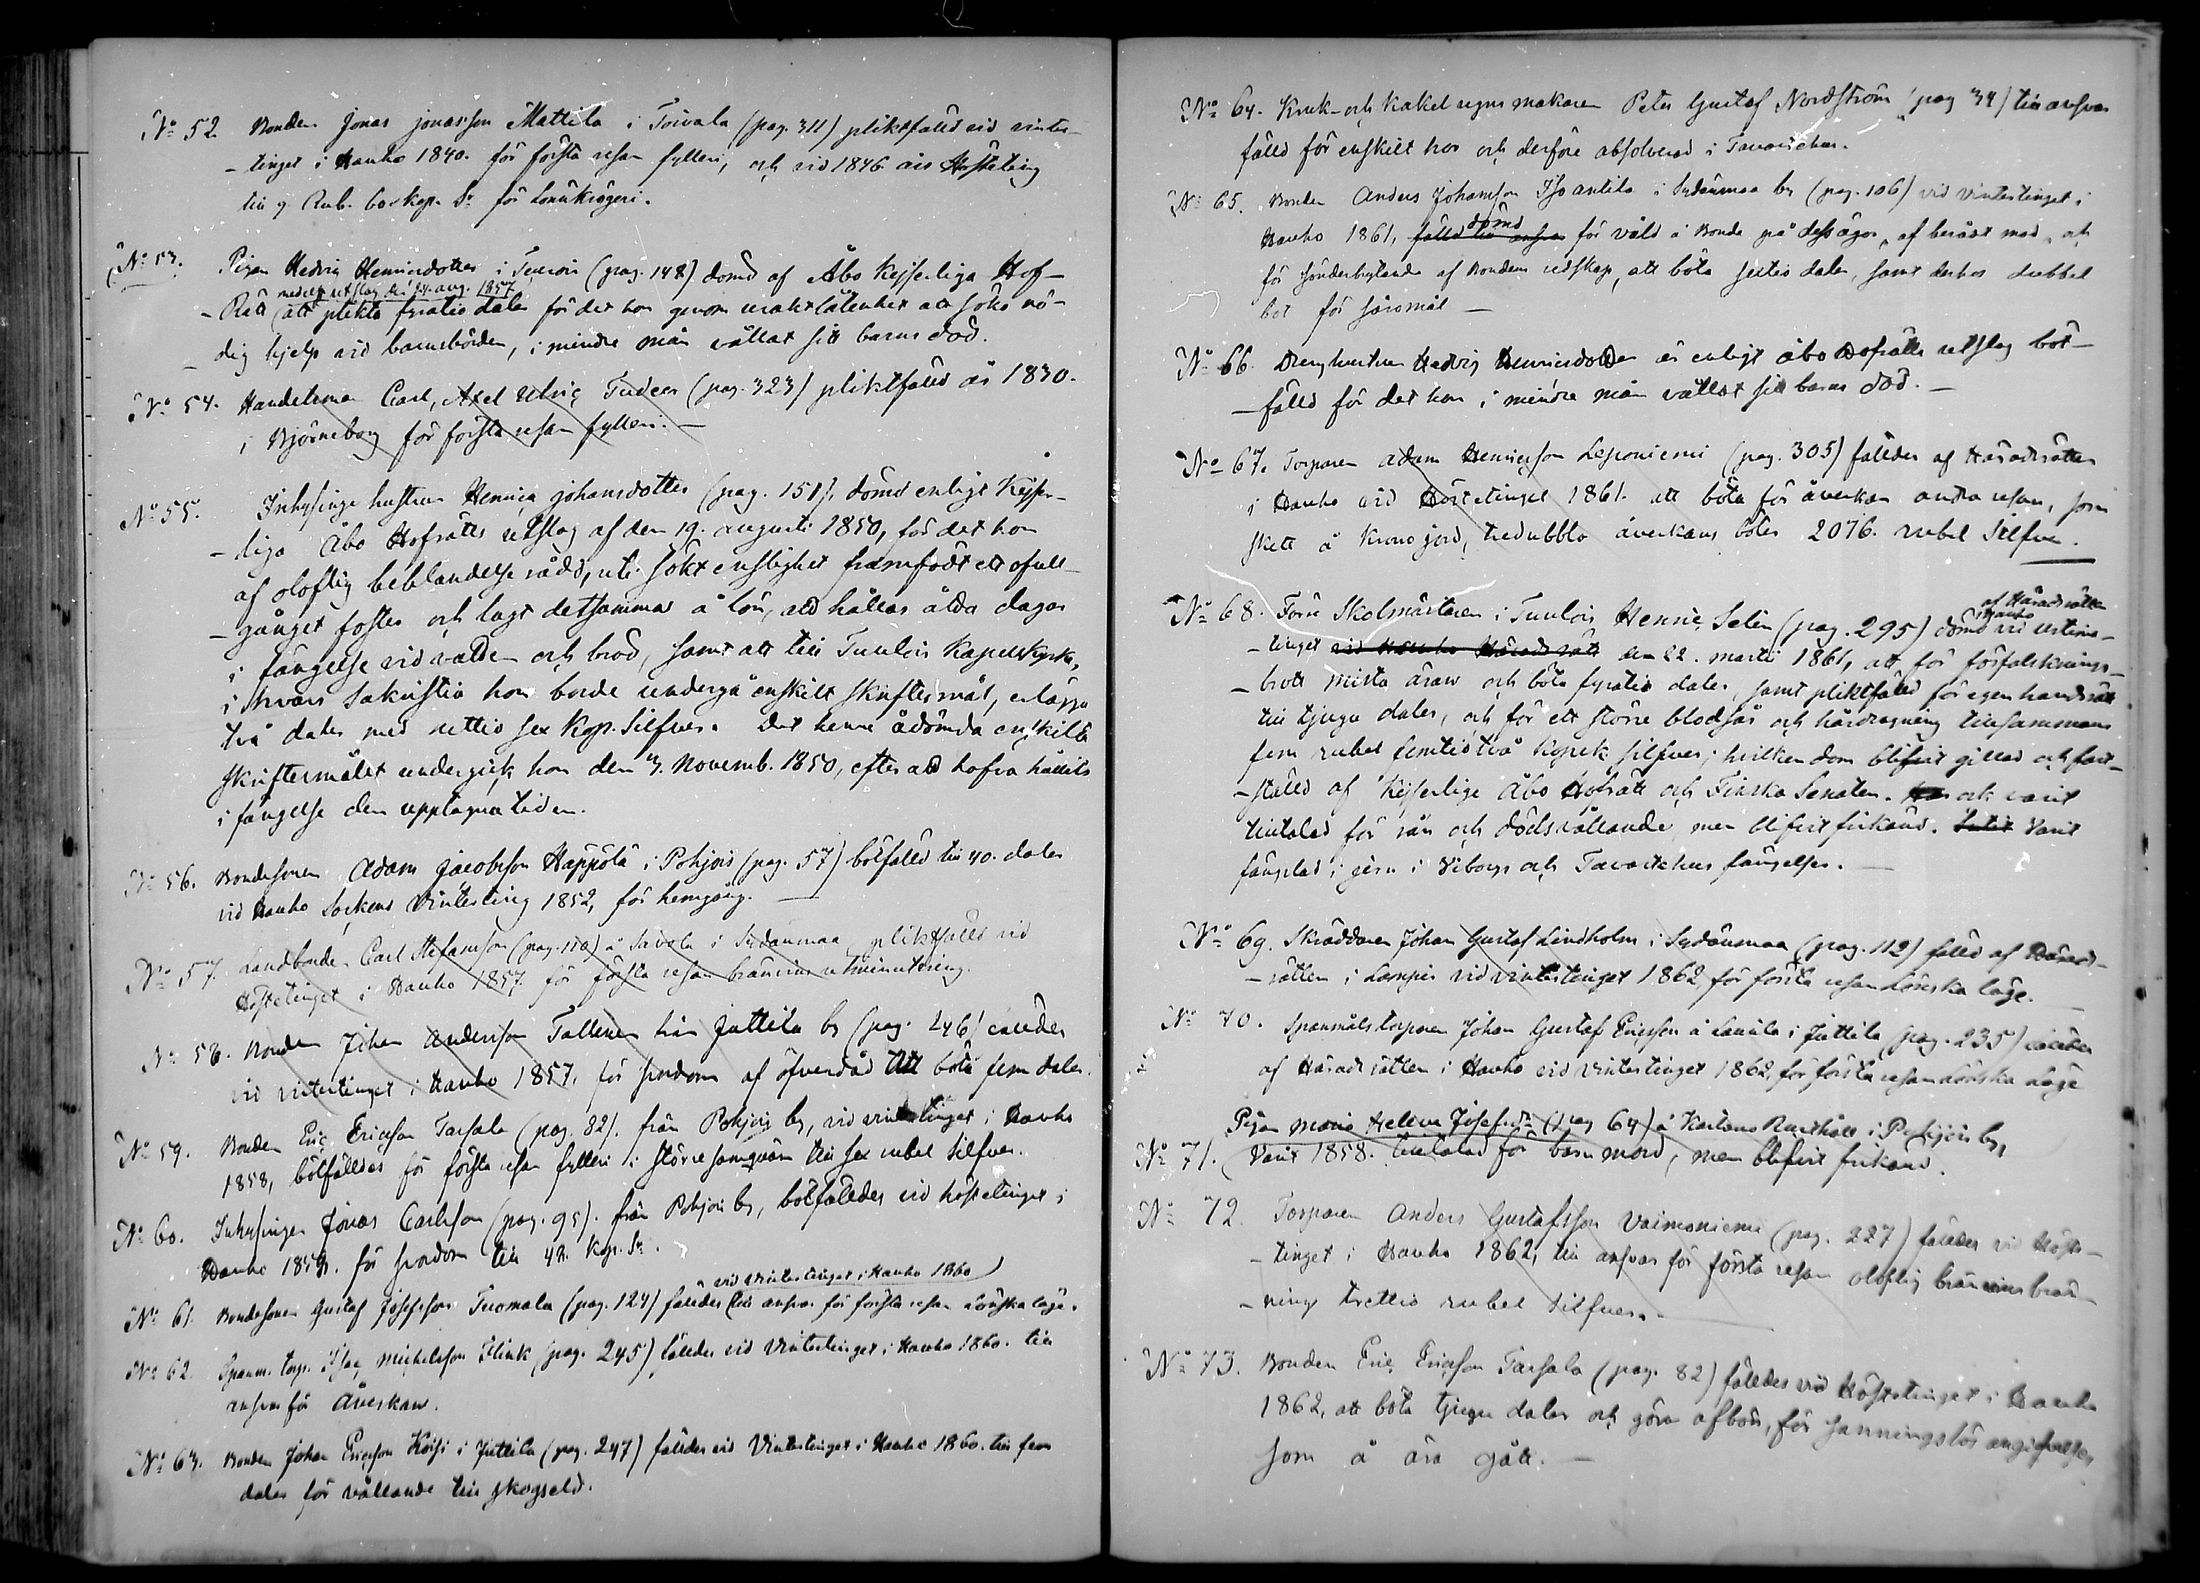 No 52 Bonden Jonas Jonasson Mattila i Toivala (pag. 311) pliktfälld vid vinter-
-tinget i Hauho 1840. för första resan fylleri, och vid 1846 års Hösteting
till 9. Rub. 60 kop. Sr för Lönnkrögeri.
No 53. Pigan Hedvig Henricsdotter i Tuulois (pag. 148) dömd af Åbo Kejserliga Hof-
medelst utslag den 24. aug. 1857
-Rätt att plikta fyratio daler för det hon genom uraktlåtenhet att söka nö-
dig hjelp vid barnsbörden, i mindre mån vållat sitt barns död.
No 54. Handelsman Carl, Axel Ulric Tudeer (pag. 323) pliktfälld år 1830.
i Björneborg för första resan fylleri. —
No 55. Inhysinge hustrun Henrica Johansdotter (pag. 151), dömd enligt Kejser-
-liga Åbo Hofrätts utslag af den 19. augusti 1850, för det hon
af oloflig beblandelse rådd, uti sökt enslighet framfödt ett ofull-
-gånget foster och lagt detsamma å lön, att hållas åtta dagar
i fängelse vid vatten och bröd, samt att till Tuulois Kapellkyrka,
i hvars Sakristia hon borde undergå enskilt skriftermål, erlägga
två daler med nettio sex Kop. Silfver. Det henne ådömda enskilta
skriftermålet undergick hon den 3. Novemb. 1850, efter att hafva hållits
i fängelse den upptagna tiden.
No 56. Bondesonen Adam Jacobsson Happola i Pohjois (pag. 57) bötfälld till 40. daler
vid Hauho Sockens Vinterting 1852, för hemgång. —
No 57. Landbonde Carl Stefansson (pag. 110) å Savola i Sydänmaa pliktfälld vid
Höstetinget i Hauho 1857 för första resan bränvins utminutering.
No 58. Bonden Johan Andersson Tallenen från Juttila by (pag. 246) fälldes
vid vintertinget i Hauho 1857, för svordom af öfverdåd att böta fem daler.
No 59. Bonden Eric Ericsson Tarsala (pag. 82). från Pohjois by, vid vintertinget i Hauho
1858, bötfälldes för första resan fylleri i större samqväm till sex rubel silfver.
No 60. Inhysingen Jonas Carlsson (pag. 95). från Pohjois by, bötfälldes vid höstetinget i
Hauho 1859. för svordom till 48. Kop. Sr.
vid Vintertinget i Hauho 1860
No 61. Bondesonen Gustaf Josefsson Tuomala (pag. 124) fälldes till ansvar för första resan Lönskaläge.
No 62. Spanm. torp. Isac Michelsson Flink (pag. 245) fälldes vid Vintertinget i Hauho 1860. till
ansvar för Åverkan.
No 63. Bonden Johan Ericsson Koisi i Juttila (pag. 247) fälldes vid Vintertinget i Hauho 1860. till fem
daler för vållande till skogseld.
No 64. Kruk- och Kakelugns makaren Peter Gustaf Nordström (pag 34) till ansvar
fälld för enskilt hor och derföre absolverad i Tavastehus.
No 65. Bonden Anders Johansson Isoantila i Sydänmaa by (pag. 106) vid Vintertinget i
dömd
Hauho 1861, fälld till ansvar för våld å Bonde på dess ägor, af beråst mod, och
för sönderbrytande af Bondens redskap, att böta sextio daler, samt derhos dubbel
bot för såramål —
No 66. Drenghustrun Hedvig Henricsdotter är enligt Åbo Hofrätts utslag böt-
-fälld för det hon i mindre mån vållat sitt barns död. —
No 67. Torparen Adam Henricsson Leponiemi (pag. 305) fälldes af Häradsrätten
i Hauho vid Höstetinget 1861. att böta för åverkan andra resan, som
skett å Krono jord, tredubbla åverkans böter 2076. rubel Silfver.
No 68. Förre Skolmästaren i Tuulois Henric Selin (pag. 295) dömd vid urtima-
af Häradsrätten
i Hauho
-tinget vid Hauho Häradsrätt den 22. martii 1861, att för förfalsknings-
-brott mista äran och böta fyratio daler, samt pliktfälld för egen handsrätt
till tjugu daler, och för ett större blodsår och hårdragning tillsammans
fem rubel femtiotvå kopek silfver; hvilken dom blifvit gillad och fast-
-ställd af Kejserliga Åbo Hofrätt och Finska Senaten. Har och varit
tilltalad för rån och dödsvållande men blifvit frikänd. Varit
fängslad i jern i Viborgs och Tavastehus fängelser. —
No 69. Skräddaren Johan Gustaf Lindholm i Sydänmaa (pag. 112) fälld af Härads-
-rätten i Lampis vid vintertinget 1862, för första resan Lönska läge.
No 70. Spanmålstorparen Johan Gustaf Ericsson å Laurila i Juttila (pag. 235) fälldes
af Häradsrätten i Hauho vid Vintertinget 1862, för första resan Lönska Läge
Pigan Maria Helena Josefsdr (pag 64) å Karlano Rusthåll i Pohjois by,
No 71. Varit 1858. tilltalad för barnmord, men blifvit frikänd.
No 72. Torparen Anders Gustafsson Vaimoniemi (pag. 227) fälldes vid Höste-
-tinget i Hauho 1862, till ansvar för första resan oloflig bränvins brän-
-ning trettio rubel silfver. —
No 73. Bonden Eric Ericsson Tarsala (pag. 82) fälldes vid Höstetinget i Hauho
1862, att böta tjugu daler och göra afbön, för sanningslös angifvelse
som å ära gått. —